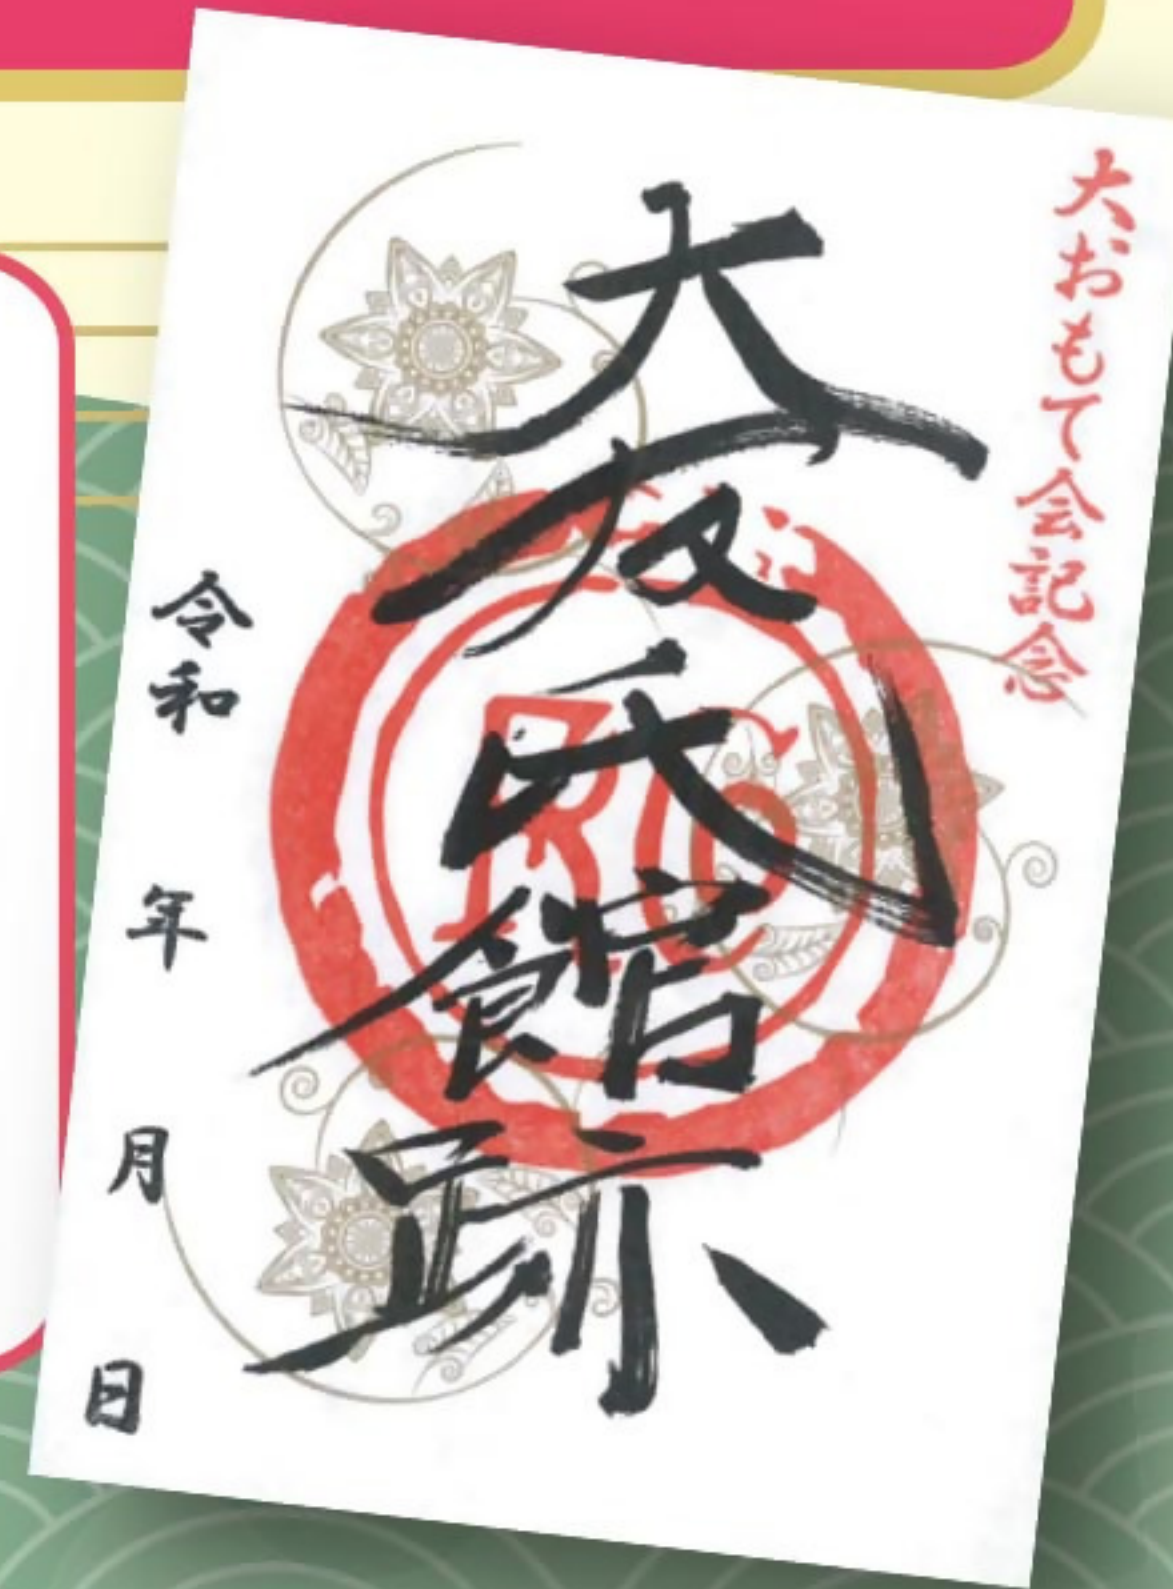 大おもて会記念
大友氏館跡
令和 年 月 日